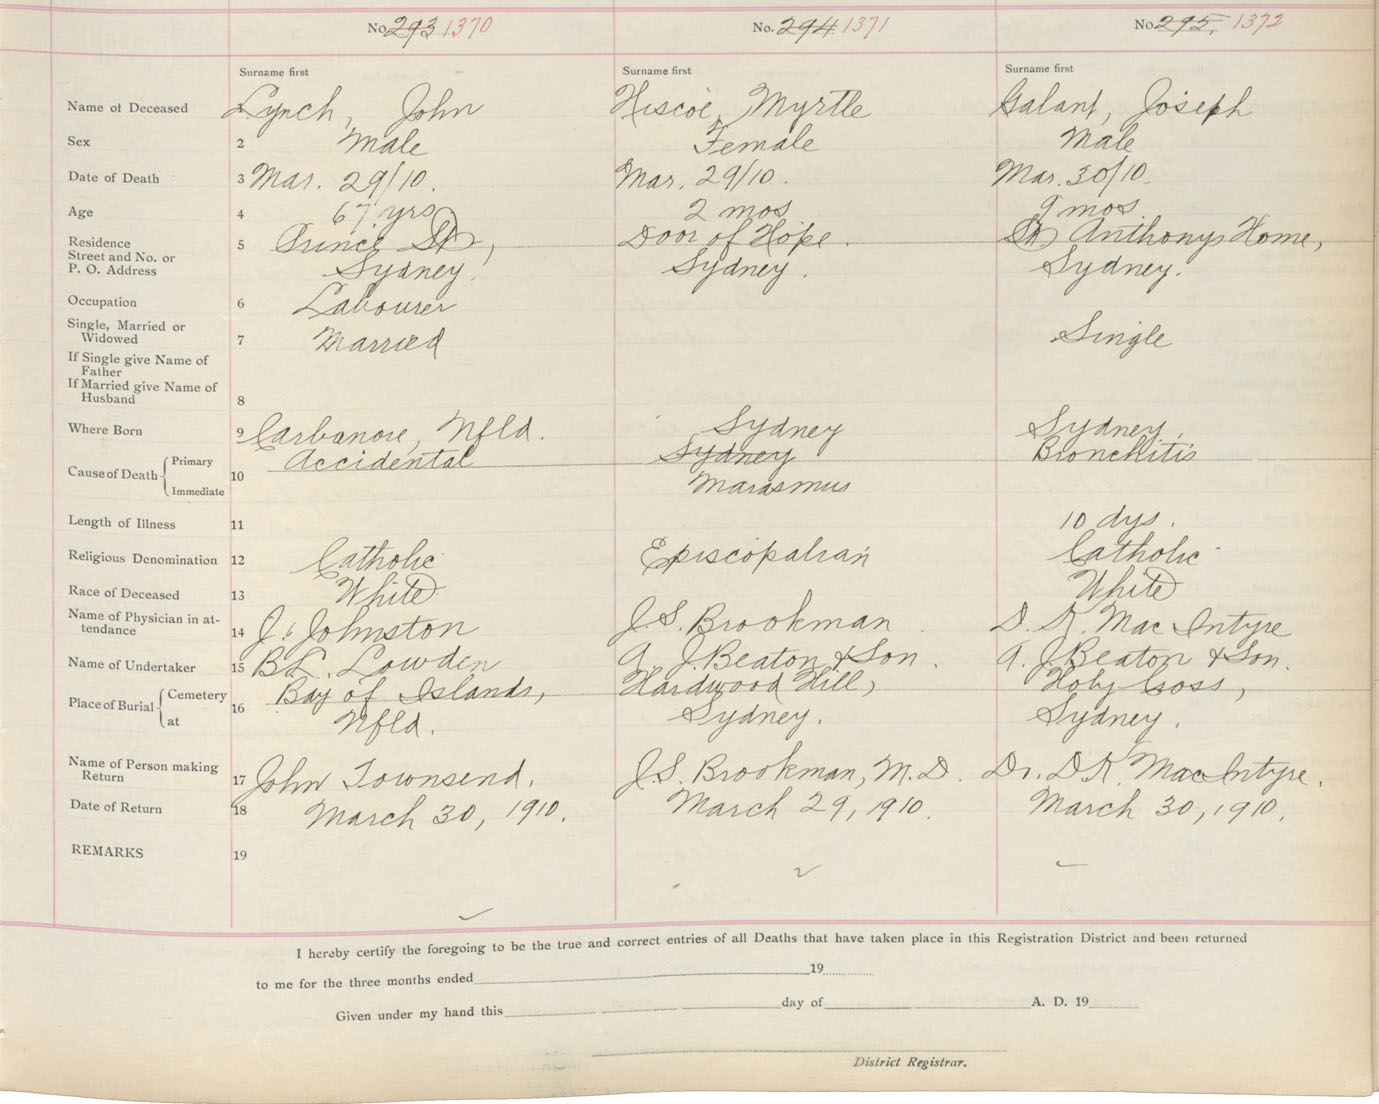 No. 293 1370 No. 294 1371 No. 295 1372
Surname first Surname first Surname first
Name of Deceased 1 Lynch, John Hiscoe, Myrtle Galant, Joseph
Sex 2 Male Female Male
Date of Death 3 Mar. 29/10. Mar. 29/10. Mar. 30/10.
Age 4 67 yrs 2 mos 9 mos
Residence 5 Prince St, Door of Hope. St Anthonys Home,
Street and No. or
P. O. Address Sydney. Sydney. Sydney.
Occupation 6 Labourer
Single, Married or
Widowed 7 Married Single
If Single give Name of
Father
If Married give Name of
Husband 8
Where Born 9 Carbonore, Nfld. Sydney Sydney.
Cause of Death Primary 10 Accidental Sydney Bronchitis
Immediate Marasmus
Length of Illness 11 10 dys.
Religious Denomination 12 Catholic Episcopalian Catholic
Race of Deceased 13 White White
Name of Physician in at-
tendance 14 J. Johnston J. S. Brookman D. K. MacIntyre
Name of Undertaker 15 B L. Lowden A. J. Beaton & Son. A. J. Beaton & Son.
Place of Burial Cemetery 16 Bay of Islands, Hardwood Hill, Holy Cross,
at Nfld. Sydney. Sydney.
Name of Person making
Return 17 John Townsend. J. S. Brookman, M. D. Dr. D K. MacIntyre.
Date of Return 18 March 30, 1910. March 29, 1910. March 30, 1910.
REMARKS 19
I hereby certify the foregoing to be the true and correct entries of all Deaths that have taken place in this Registration District and been returned
to me for the three months ended 19
Given under my hand this day of A. D. 19
District Registrar.